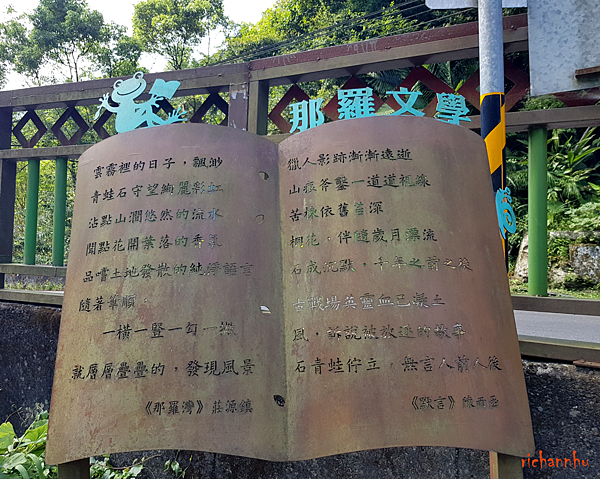 那羅文學
雲霧裡的日子，飄渺
青蛙石守望絢麗彩虹
沾點山澗悠然的流水
聞點花開葉落的香氣
品嚐土地發散的純淨語言
隨著筆順。
一橫一豎一勾一撇
就層層疊疊的，發現風景
《那羅灣》莊源鎮
獵人影跡漸漸遠逝
山痕斧鑿一道道視線
苦楝依舊
桐花，伴隨歲月漂流
石成沉默，千年之前之後
古戰場英靈血已凝土
風，訴說被放逐的故事
石青蛙佇立，無言人前人後
《默言》
richannhu